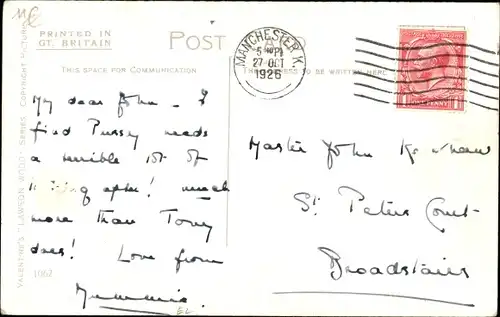 PRINTED IN
GT. BRITAIN
POST
THIS SPACE FOR COMMUNICATION
TO BE WRITTEN HERE
MANCHESTER. K.
27 OCT
1926
VALENTINE'S "LAWSON WOOD" SERIES COPYRIGHT PICTURE
1062
My dear John – I
find Pussy needs
a terrible lot of
looking after! much
more than Tony
does! Love from
Mummie.
Master John
St. Peters Court
Broadstairs